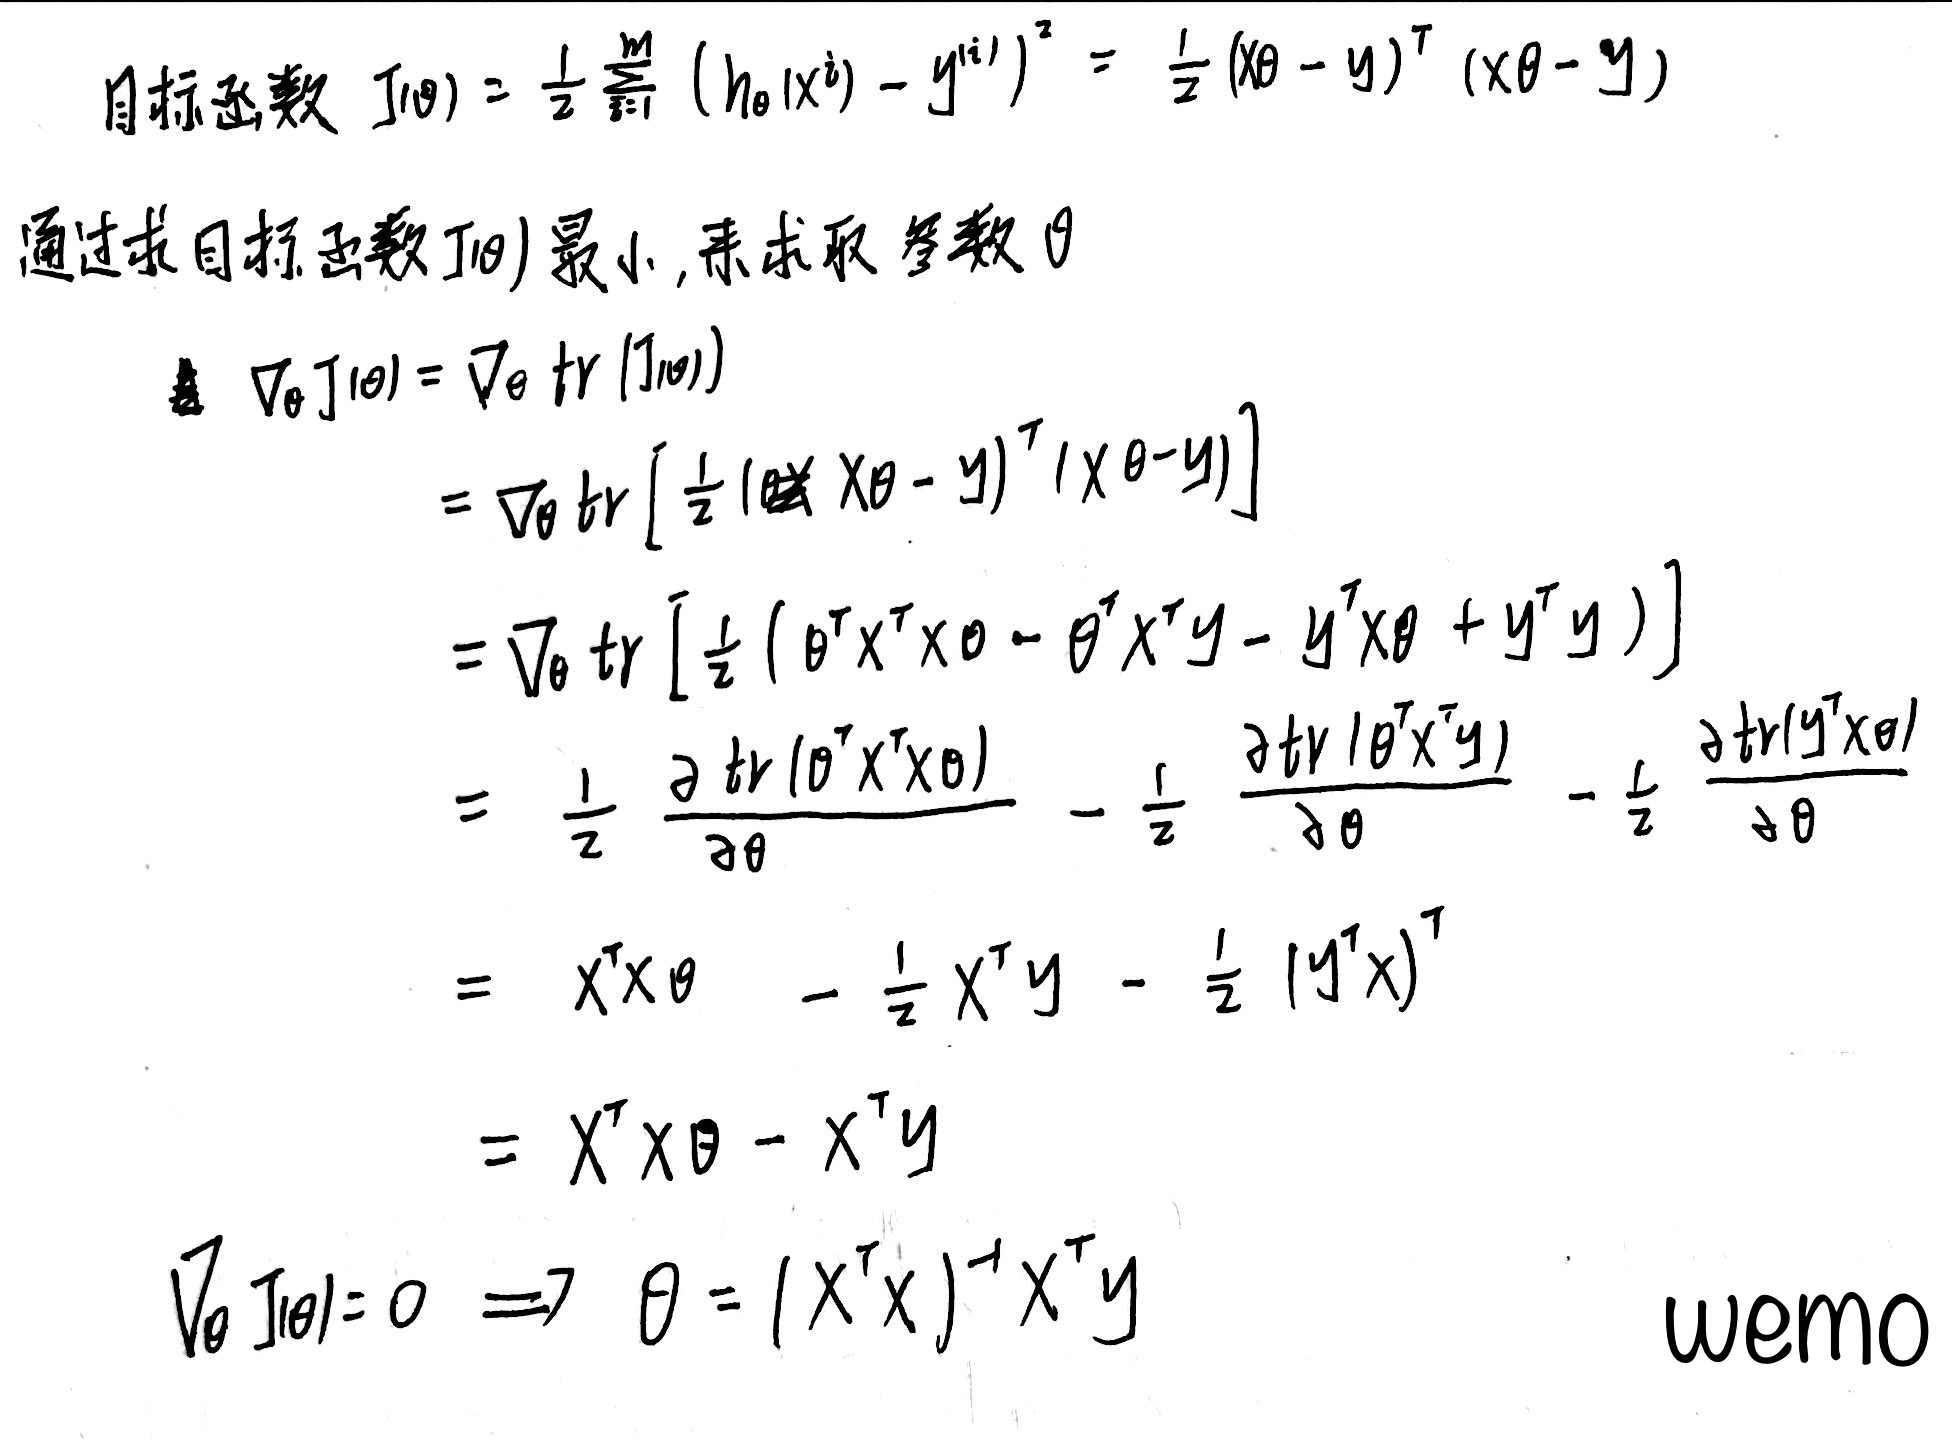 目标函数 J(θ) = 1/2 Σ_{i=1}^{m} (h_θ(x^i) - y^{(i)})^2 = 1/2 (Xθ - y)^T (Xθ - y)
通过求目标函数J(θ)最小,来求取参数θ
∇_θ J(θ) = ∇_θ tr(J(θ))
= ∇_θ tr[1/2 (Xθ - y)^T (Xθ - y)]
= ∇_θ tr[1/2 (θ^T X^T Xθ - θ^T X^T y - y^T Xθ + y^T y)]
= 1/2 ∂tr(θ^T X^T Xθ)/∂θ - 1/2 ∂tr(θ^T X^T y)/∂θ - 1/2 ∂tr(y^T Xθ)/∂θ
= X^T Xθ - 1/2 X^T y - 1/2 (y^T X)^T
= X^T Xθ - X^T y
∇_θ J(θ) = 0 ⟹ θ = (X^T X)^{-1} X^T y
wemo